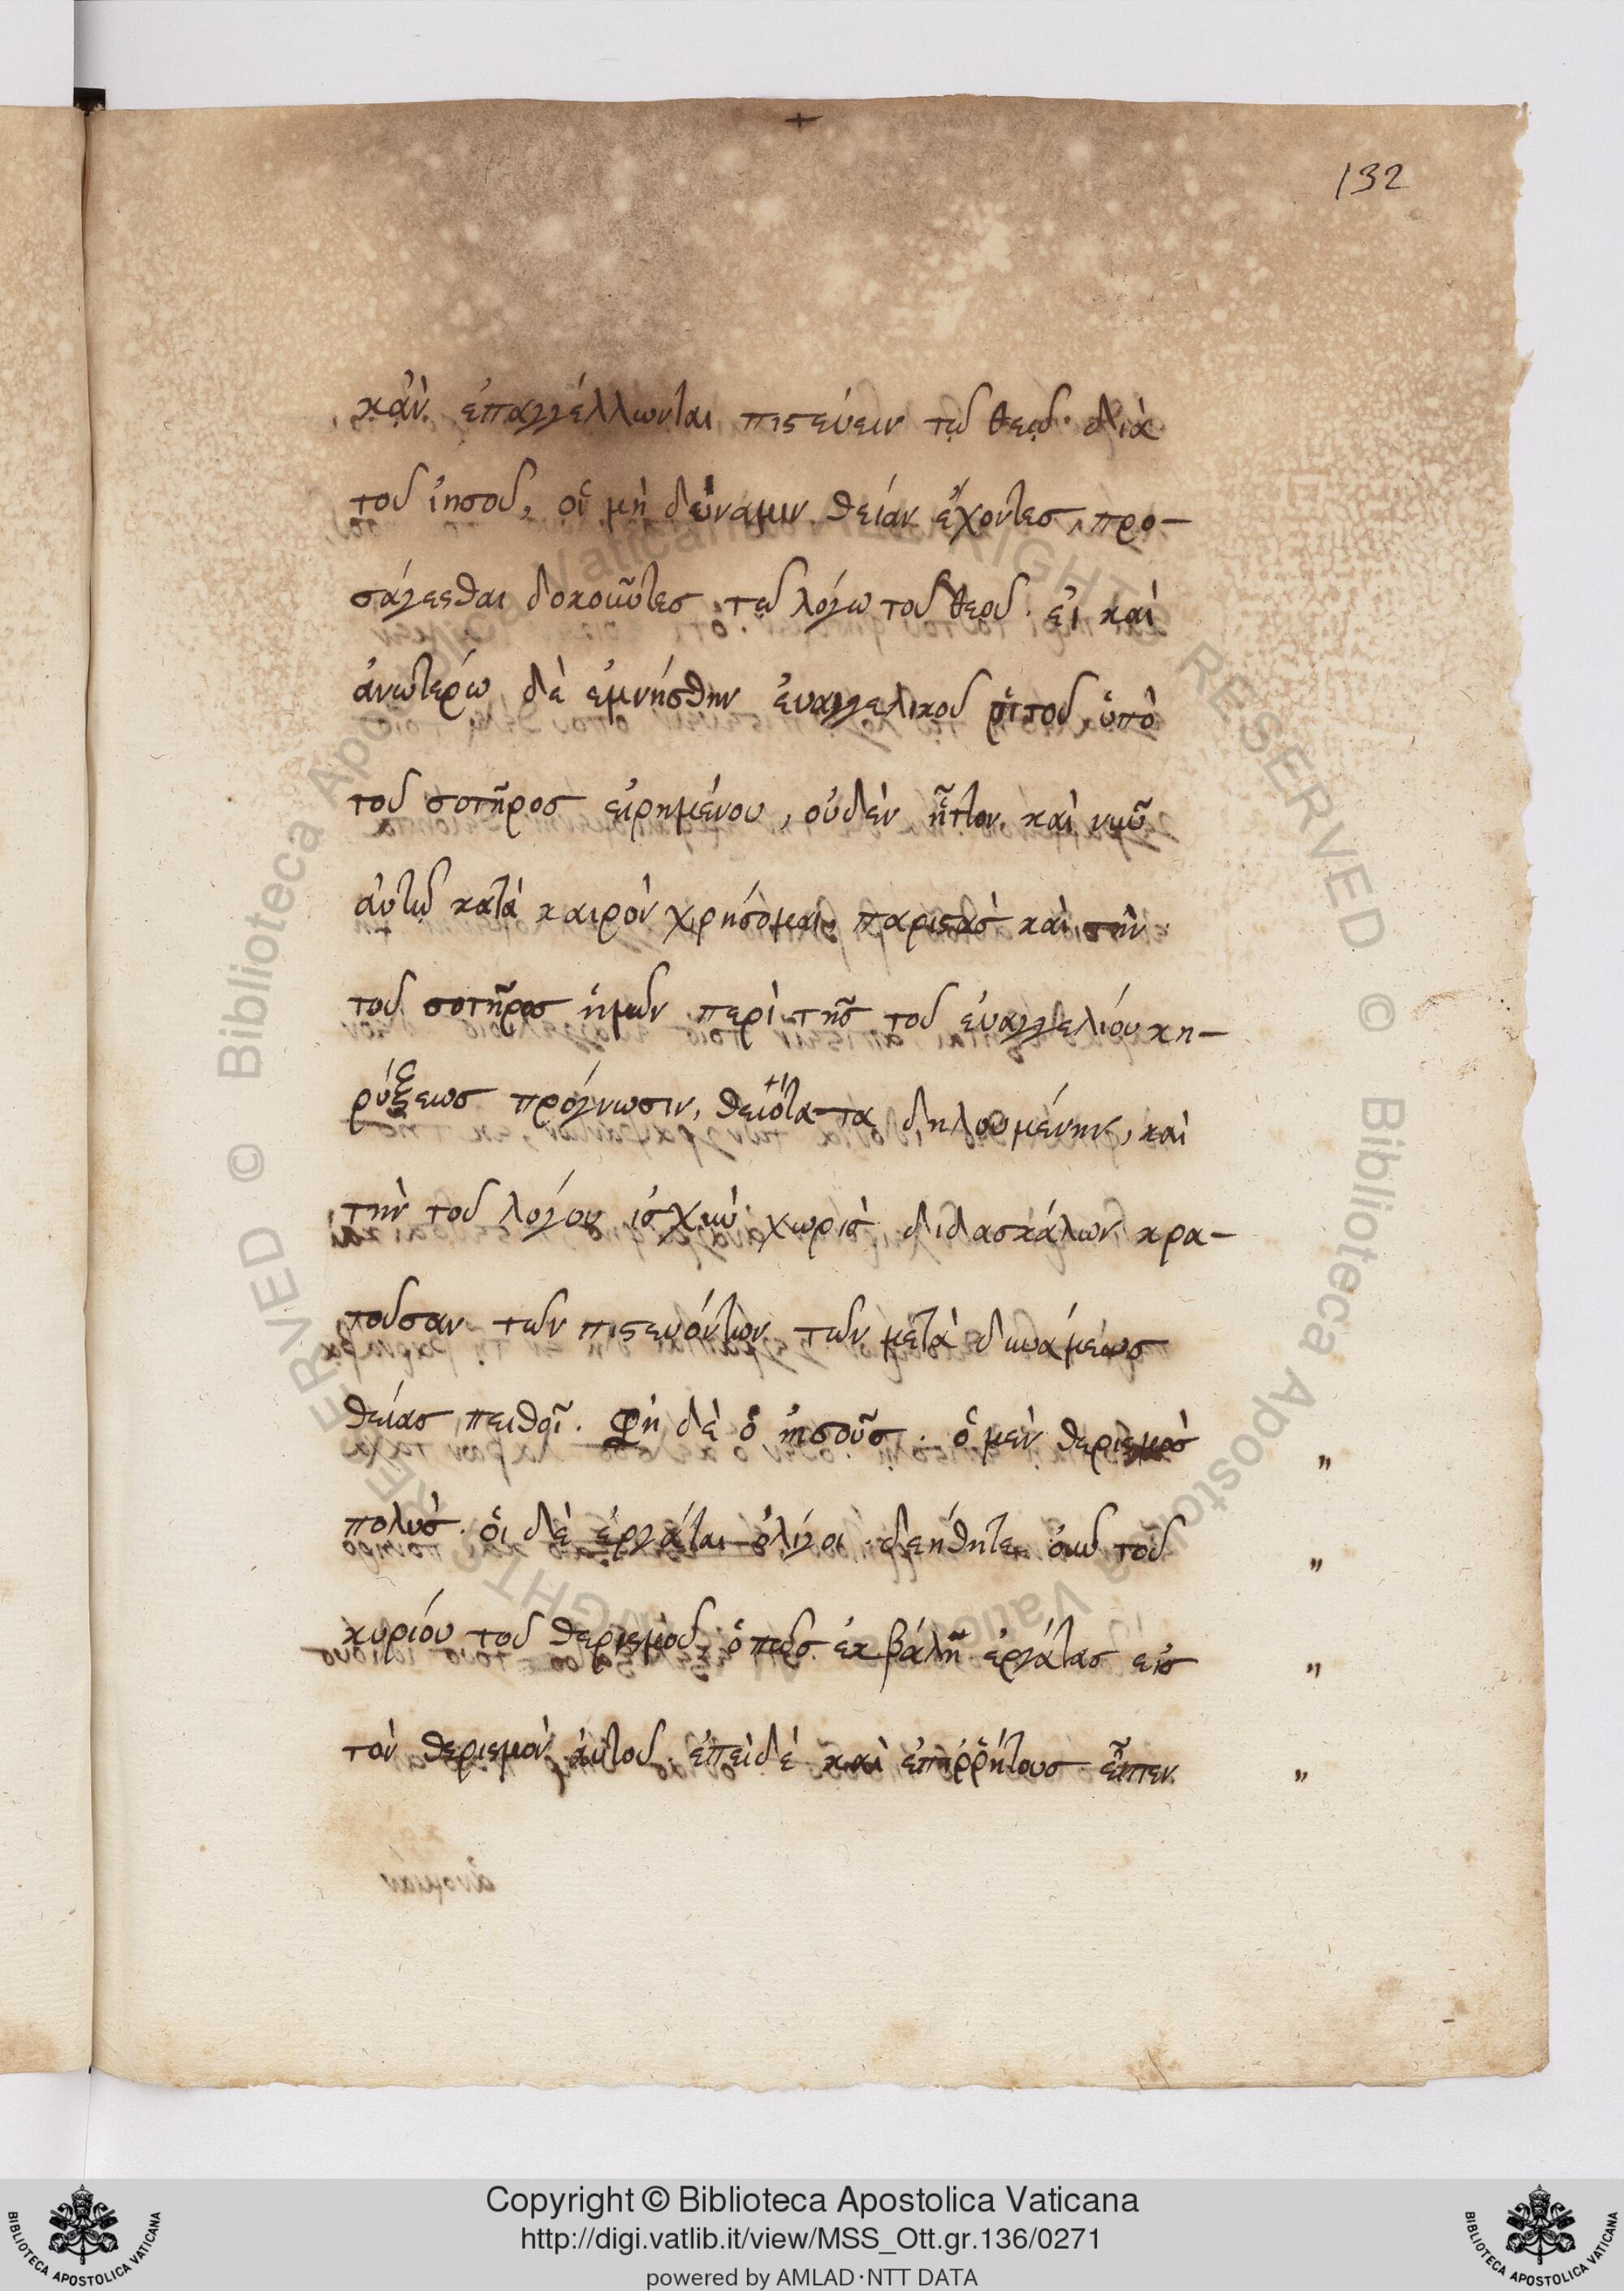 132
κἀν ἐπαγγέλλωνται πιστεύειν τῷ θεῷ· διὰ
τοῦ ἰησοῦ, οἱ μὴ δύναμιν θείαν ἔχοντες, προ-
σάγεσθαι δοκοῦντες τῷ λόγω τοῦ θεοῦ· εἰ καὶ
ἀνωτέρω δὲ ἐμνήσθην ἐυαγγελικοῦ ῥιτοῦ, ὑπὸ
τοῦ σοτῆρος εἰρημένου, οὐδὲν ἧττον, καὶ νῦν
ἀυτῷ κατὰ καιρὸν χρήσομαι, παριστὰς καὶ τὴν
τοῦ σοτῆρος ἡμῶν περὶ τῆς τοῦ ἐυαγγελίου κη-
ρύξεως πρόγνωσιν, θειότατα δηλουμένην, καὶ
τὴν τοῦ λόγου ἰσχὺν χωρὶς διδασκάλων κρα-
τοῦσαν τῶν πιστευόντων τῶν μετὰ δυνάμεως
θείας πειθοῖ. Φὴ δὲ ὁ ἰησοῦς. ὁ μὲν θερισμὸς "
πολύς. ὁι δὲ ἐργάται ὀλίγοι· δεήθητε ὀυν τοῦ "
κυρίου τοῦ θερισμοῦ, ὁπως ἐκβάλη ἐργάτας εἰς "
τὸν θερισμὸν ἀυτοῦ. ἐπεὶ δὲ καὶ ἐπιῤῥήτους εἶπεν "
Copyright © Biblioteca Apostolica Vaticana
http://digi.vatlib.it/view/MSS_Ott.gr.136/0271
powered by AMLAD·NTT DATA
BIBLIOTECA APOSTOLICA VATICANA
BIBLIOTECA APOSTOLICA VATICANA